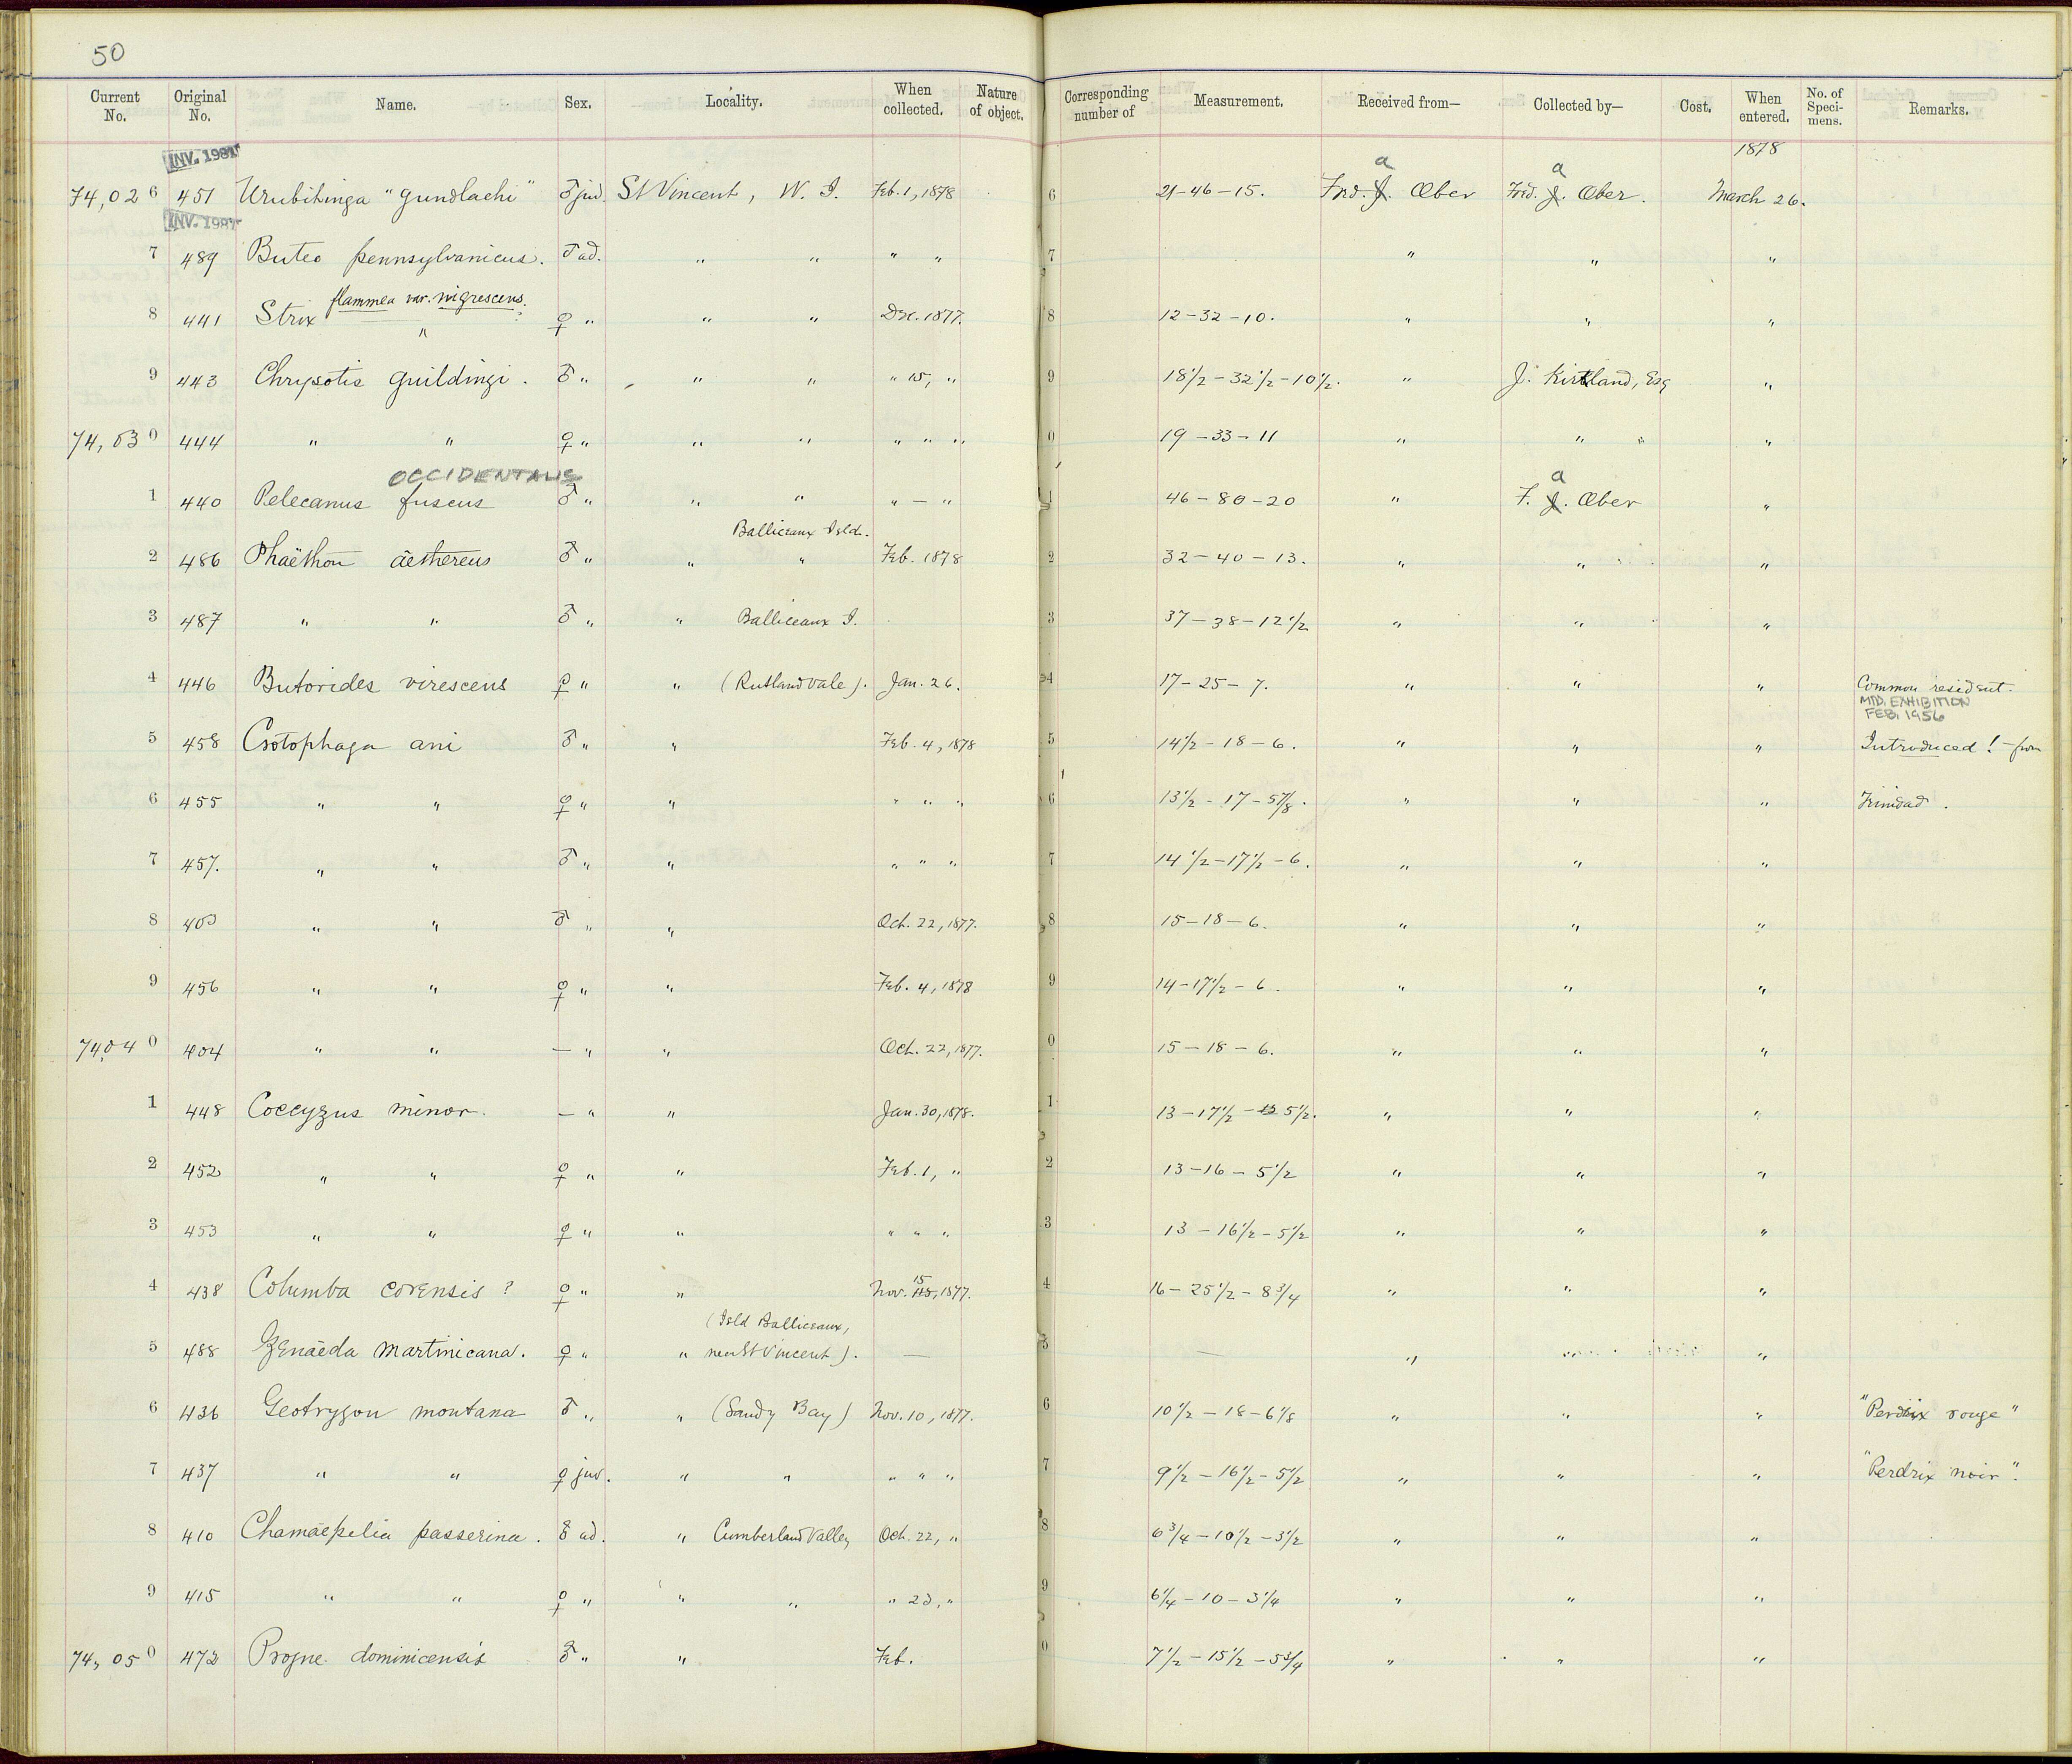 50
Current No. Original No. Name. Sex. Locality. When collected. Nature of object. Corresponding number of Measurement. Received from— Collected by— Cost. When entered. No. of Speci-mens. Remarks.
1878
INV. 1981
74,026 451 Urubitinga "Gundlachi" ♂ juv. St Vincent, W. I. Feb. 1, 1878 6 21-46-15. Fred. a J. Ober Fred. a J. Ober. March 26.
INV. 1981
7 489 Buteo pennsylvanicus. ♂ ad. " " " " 7 " " "
flammea var. nigrescens.
8 441 Strix " ♀ " " " Dec. 1877. 8 12-32-10. " " "
9 443 Chrysotis guildingi. ♂ " " " " 15, " 9 18½-32½-10½. " J. Kirkland, Esq "
74,030 444 " " ♀ " " " " " " 0 19-33-11 " " " "
OCCIDENTALIS
1 440 Pelecanus fuscus ♂ " " " " — " 1 46-80-20 " F. a J. Ober "
Balliceaux Isld.
2 486 Phaëthon aethereus ♂ " " " Feb. 1878 2 32-40-13. " " "
3 487 " " ♂ " " Balliceaux I. 3 37-38-12½ " " "
4 446 Butorides virescens ♀ " " (Rutland vale). Jan. 26. 4 17-25-7. " " " Common resident.
MTD. EXHIBITION
FEB. 1956
5 458 Crotophaga ani ♂ " " Feb. 4, 1878 5 14½-18-6. " " " Introduced! - from
6 455 " " ♀ " " " " " 6 13½-17-5⅞. " " " Trinidad.
7 457. " " ♂ " " " " " 7 14½-17½-6. " " "
8 403 " " ♂ " " Oct. 22, 1877. 8 15-18-6. " " "
9 456 " " ♀ " " Feb. 4, 1878 9 14-17½-6. " " "
74,040 404 " " — " " Oct. 22, 1877. 0 15-18-6. " " "
1 448 Coccyzus minor. — " " Jan. 30, 1878. 1 13-17½-5½. " " "
2 452 " " ♀ " " Feb. 1, " 2 13-16-5½ " " "
3 453 " " ♀ " " " " " 3 13-16½-5½ " " "
4 438 Columba corensis? ♀ " " Nov. 15, 1877. 4 16-25½-8¾ " " "
(Isld Balliceaux,
5 488 Zenaeda martinicana. ♀ " " near St Vincent). — 5 — " " "
6 436 Geotrygon montana ♂ " " (Sandy Bay) Nov. 10, 1877. 6 10½-18-6⅛ " " " "Perdrix rouge"
7 437 " " ♀ juv. " " " " " 7 9½-16½-5½ " " " "Perdrix noir".
8 410 Chamaepelia passerina. ♂ ad. " Cumberland Valley Oct. 22, " 8 6¾-10½-3½ " " "
9 415 " " ♀ " " " " 23, " 9 6¼-10-3¼ " " "
74,050 472 Progne dominicensis ♂ " " Feb. 0 7½-15½-5¾ " " "